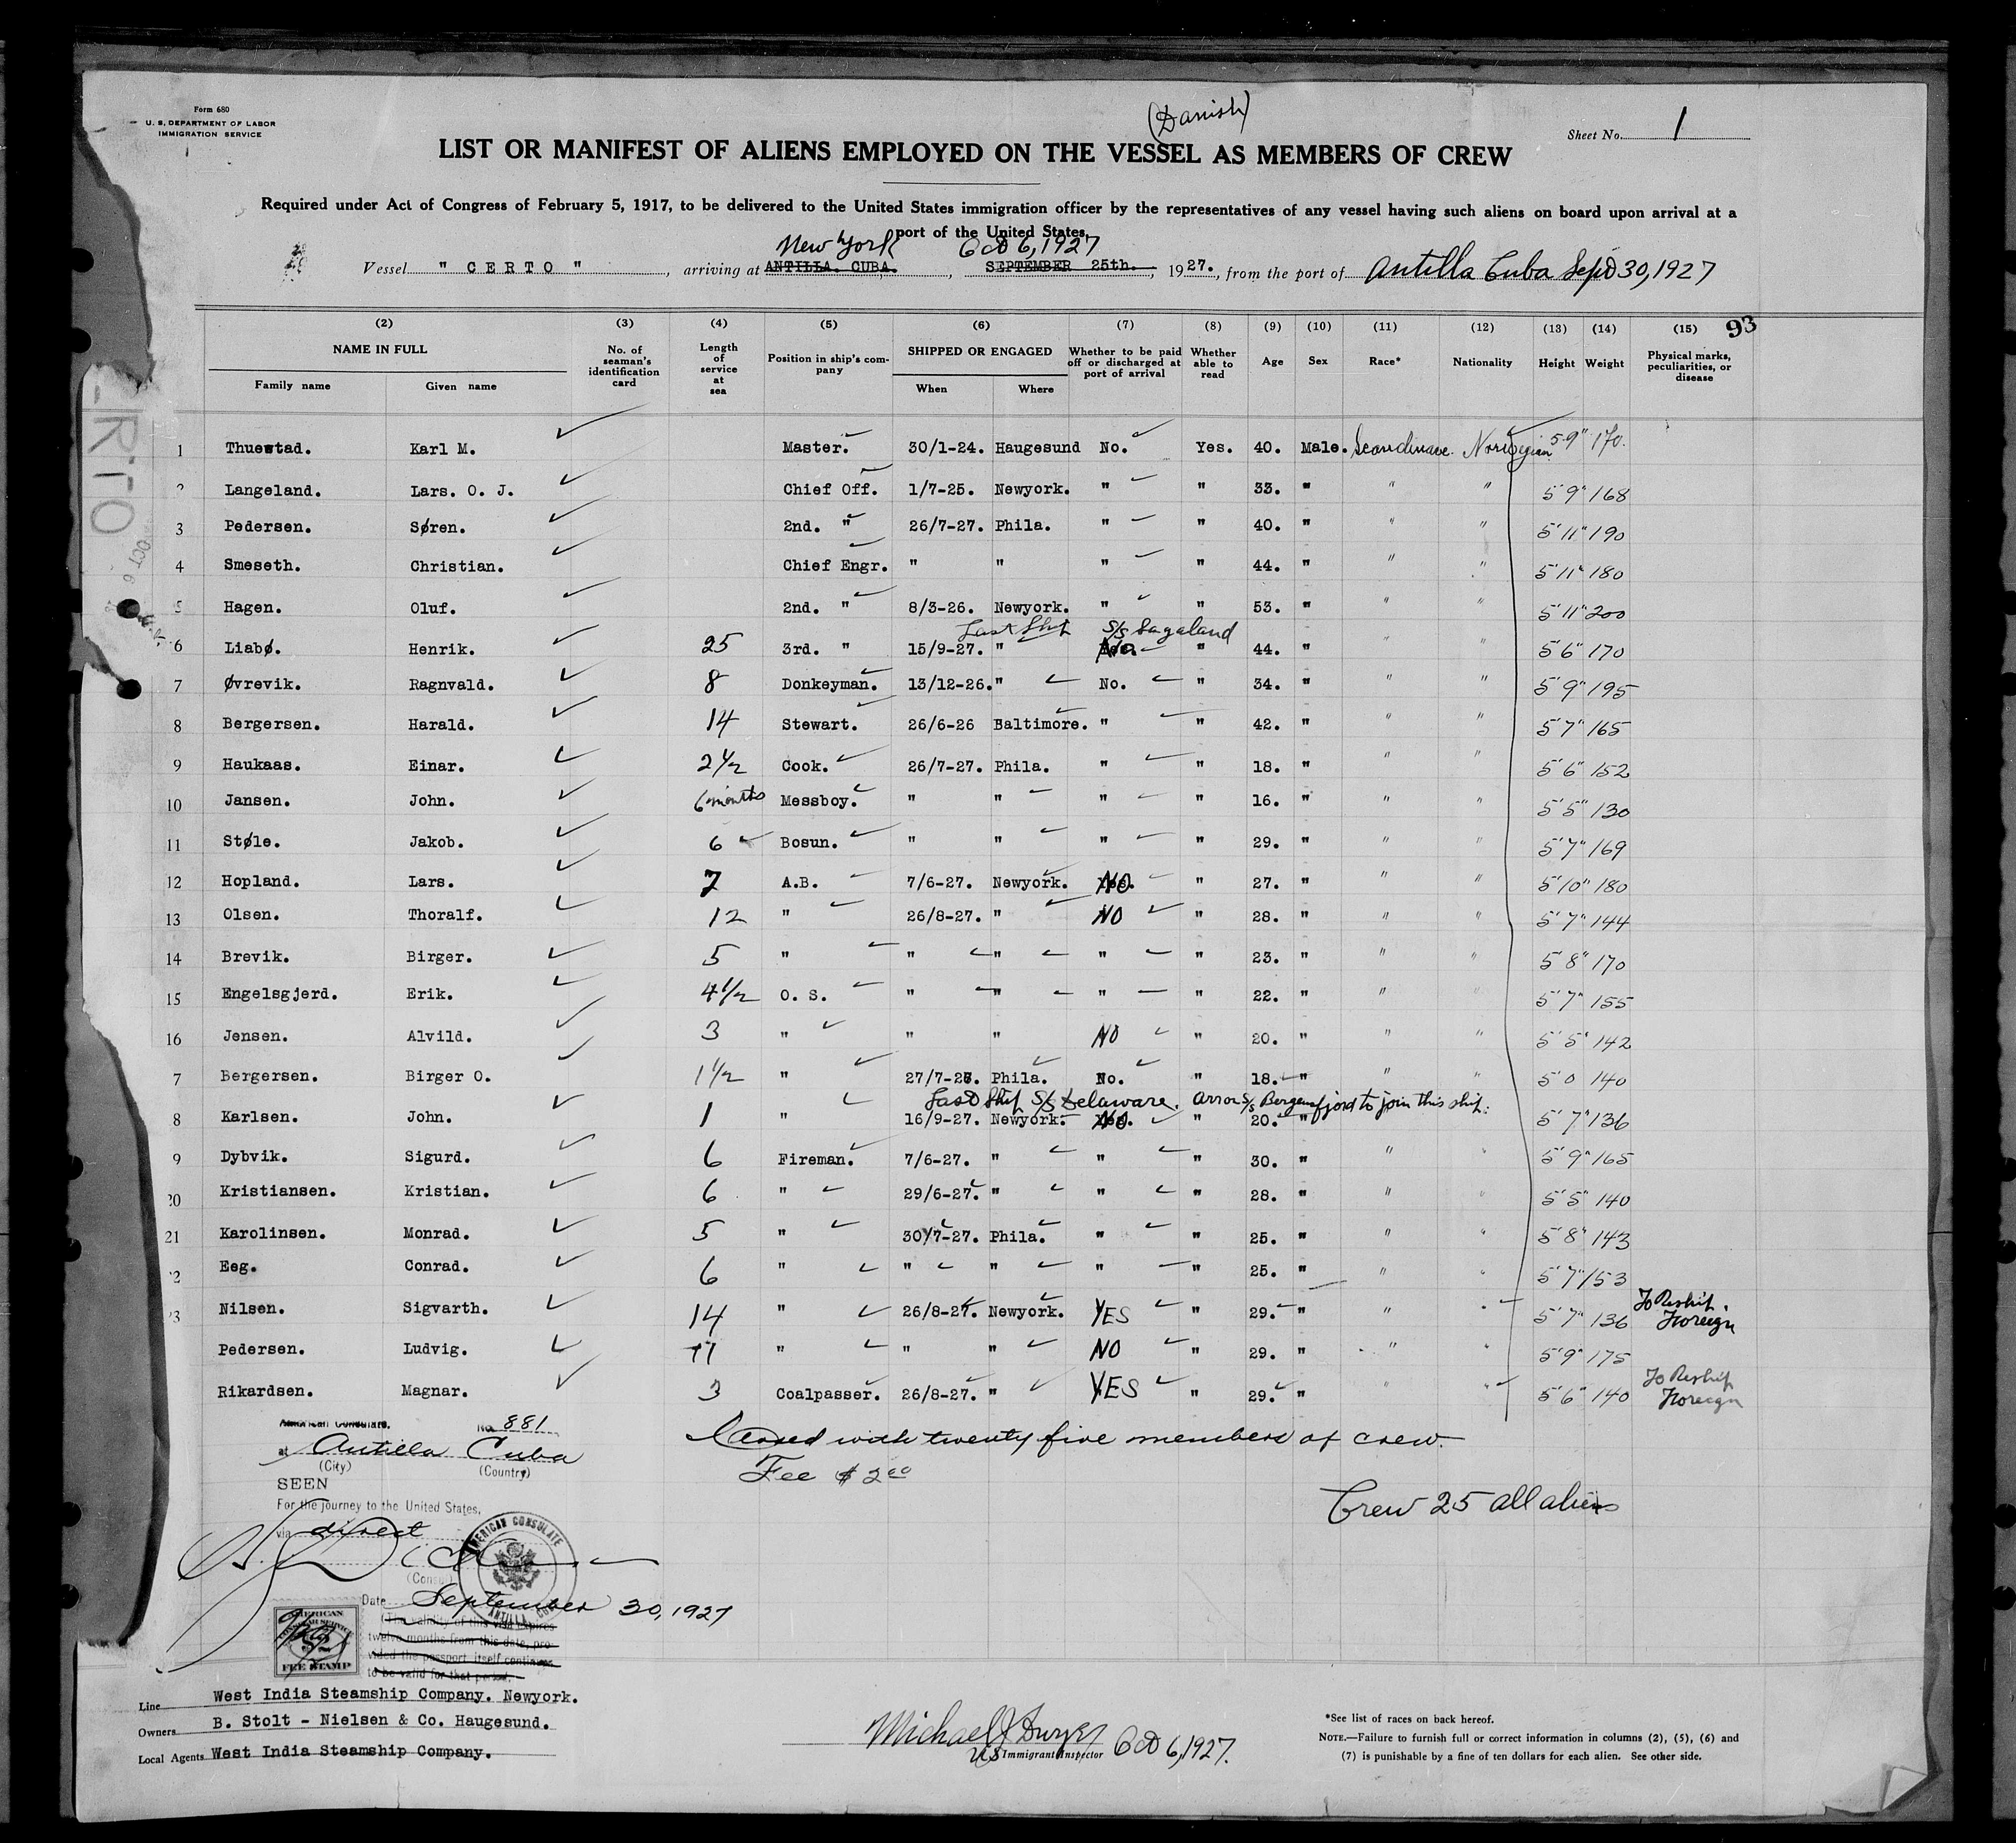 Form 680
U. S. DEPARTMENT OF LABOR
IMMIGRATION SERVICE
(Danish)
Sheet No. 1
LIST OR MANIFEST OF ALIENS EMPLOYED ON THE VESSEL AS MEMBERS OF CREW
Required under Act of Congress of February 5, 1917, to be delivered to the United States immigration officer by the representatives of any vessel having such aliens on board upon arrival at a
port of the United States.
New York Oct 6, 1927
Vessel " CERTO ", arriving at ANTILLA. CUBA., SEPTEMBER 25th., 1927., from the port of Antilla Cuba Sept 30, 1927
93
(2) (3) (4) (5) (6) (7) (8) (9) (10) (11) (12) (13) (14) (15)
NAME IN FULL No. of seaman's identification card Length of service at sea Position in ship's company SHIPPED OR ENGAGED Whether to be paid off or discharged at port of arrival Whether able to read Age Sex Race* Nationality Height Weight Physical marks, peculiarities, or disease
Family name Given name When Where
1 Thuestad. Karl M. Master. 30/1-24. Haugesund No. Yes. 40. Male. Scandinave. Norwegian 5'9" 170.
2 Langeland. Lars. O. J. Chief Off. 1/7-25. Newyork. " " 33. " " " 5'9" 168
3 Pedersen. Søren. 2nd. " 26/7-27. Phila. " " 40. " " " 5'11" 190
4 Smeseth. Christian. Chief Engr. " " " " 44. " " " 5'11" 180
5 Hagen. Oluf. 2nd. " 8/3-26. Newyork. " " 53. " " " 5'11" 200
Last Ship S/S Sagaland
6 Liabø. Henrik. 25 3rd. " 15/9-27. " No " 44. " " " 5'6" 170
7 Øvrevik. Ragnvald. 8 Donkeyman. 13/12-26. " No. " 34. " " " 5'9" 195
8 Bergersen. Harald. 14 Stewart. 26/6-26 Baltimore. " " 42. " " " 5'7" 165
9 Haukaas. Einar. 2 1/2 Cook. 26/7-27. Phila. " " 18. " " " 5'6" 152
10 Jansen. John. 6 months Messboy. " " " " 16. " " " 5'5" 130
11 Støle. Jakob. 6 Bosun. " " " " 29. " " " 5'7" 169
12 Hopland. Lars. 7 A.B. 7/6-27. Newyork. NO. " 27. " " " 5'10" 180
13 Olsen. Thoralf. 12 " 26/8-27. " NO " 28. " " " 5'7" 144
14 Brevik. Birger. 5 " " " " " 23. " " " 5'8" 170
15 Engelsgjerd. Erik. 4 1/2 O. S. " " " " 22. " " " 5'7" 155
16 Jensen. Alvild. 3 " " " NO " 20. " " " 5'5" 142
7 Bergersen. Birger O. 1 1/2 " 27/7-26. Phila. No. " 18. " " " 5'0 140
Last Ship S/S Delaware. Arr on S/S Bergensfjord to join this ship.
8 Karlsen. John. 1 " 16/9-27. Newyork. No. " 20. " 5'7" 136
9 Dybvik. Sigurd. 6 Fireman. 7/6-27. " " " 30. " " " 5'9" 165
20 Kristiansen. Kristian. 6 " 29/6-27. " " " 28. " " " 5'5" 140
21 Karolinsen. Monrad. 5 " 30/7-27. Phila. " " 25. " " " 5'8" 143
2 Eeg. Conrad. 6 " " " " " 25. " " " 5'7" 153
3 Nilsen. Sigvarth. 14 " 26/8-27. Newyork. YES " 29. " " " 5'7" 136 To Reship. Foreign
Pedersen. Ludvig. 11 " " " NO " 29. " " " 5'9" 175
Rikardsen. Magnar. 3 Coalpasser. 26/8-27. " YES " 29. " " " 5'6" 140 To Reship Foreign
American Consulate. No. 881
at Antilla Cuba
(City) (Country)
SEEN
For the journey to the United States,
via direct
(Consul)
Date September 30, 1927
(The validity of this visa expires
twelve months from this date, pro-
vided the passport itself continues
to be valid for that period.
AMERICAN CONSULATE
ANTILLA
AMERICAN
FEE STAMP
Closed with twenty five members of crew.
Fee $ 2.00
Crew 25 all aliens
Line West India Steamship Company. Newyork.
Owners B. Stolt - Nielsen & Co. Haugesund.
Local Agents West India Steamship Company.
Michael J Dwyer Oct 6, 1927.
US Immigrant Inspector
*See list of races on back hereof.
NOTE.—Failure to furnish full or correct information in columns (2), (5), (6) and
(7) is punishable by a fine of ten dollars for each alien. See other side.